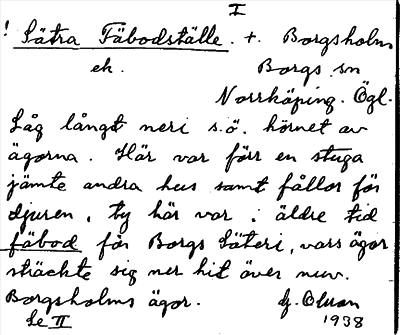 I
! Sätra Fäbodställe. +. Borgsholm
ek. Borgs sn
Norrköping. Ögl.
Låg långt neri s.ö. hörnet av
ägorna. Här var förr en stuga
jämte andra hus samt fållor för
djuren, ty här var i äldre tid
fäbod för Borgs Säteri, vars ägor
sträckte sig ner hit över nuv.
Borgsholms ägor. 
Se II 1938